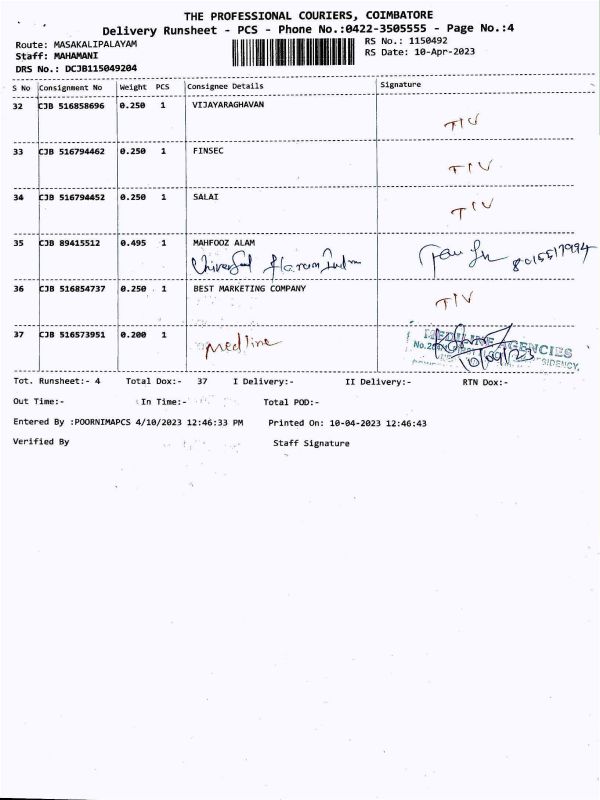 THE PROFESSIONAL COURIERS, COIMBATORE
Delivery Runsheet - PCS - Phone No.:0422-3505555 - Page No.:4
Route: MASAKALIPALAYAM RS No.: 1150492
Staff: MAHAMANI RS Date: 10-Apr-2023
DRS No.: DCJB115049204
S No Consignment No Weight PCS Consignee Details Signature
32 CJB 516858696 0.250 1 VIJAYARAGHAVAN TIV
33 CJB 516794462 0.250 1 FINSEC TIV
34 CJB 516794452 0.250 1 SALAI TIV
35 CJB 89415512 0.495 1 MAHFOOZ ALAM
Universal 8015517994
36 CJB 516854737 0.250 1 BEST MARKETING COMPANY TIV
37 CJB 516573951 0.200 1 Medline
MEDLINE AGENCIES
Tot. Runsheet:- 4 Total Dox:- 37 I Delivery:- II Delivery:- RTN Dox:-
Out Time:- In Time:- Total POD:-
Entered By :POORNIMAPCS 4/10/2023 12:46:33 PM Printed On: 10-04-2023 12:46:43
Verified By Staff Signature